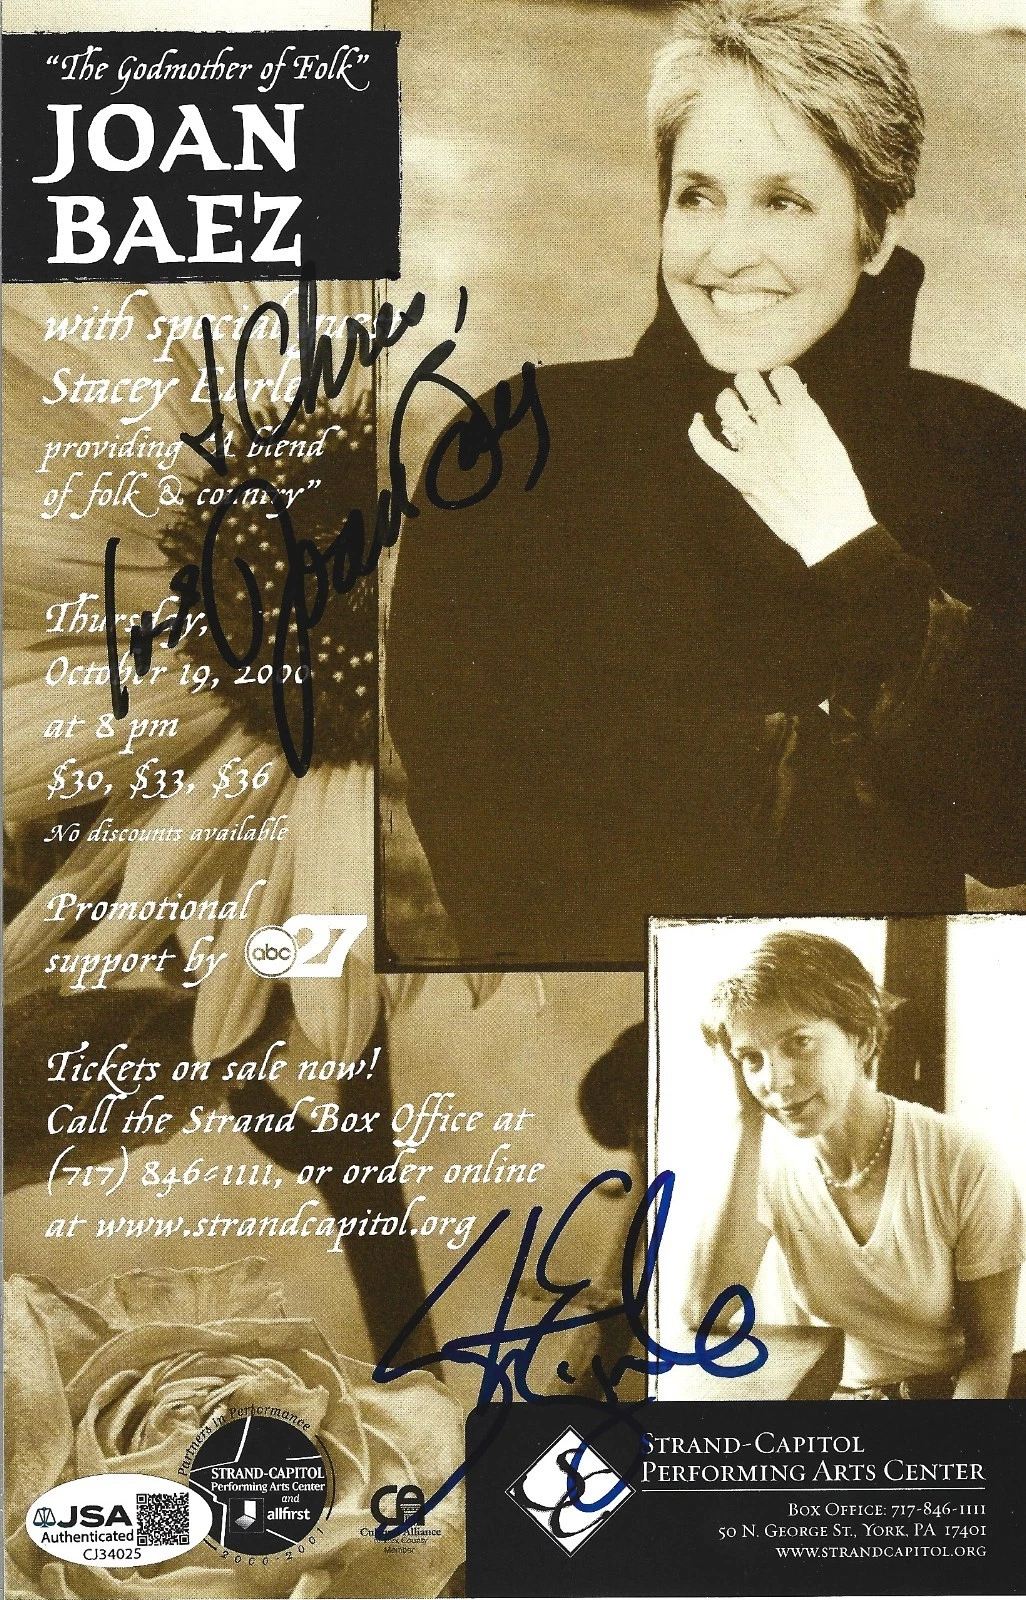 “The Godmother of Folk”
JOAN
BAEZ
with special guest
Stacey Earle
providing “A blend
of folk & country”
To Chris,
Love Joan Baez
Thursday,
October 19, 2000
at 8 pm
$30, $33, $36
No discounts available
Promotional
support by abc 27
Tickets on sale now!
Call the Strand Box Office at
(717) 846-1111, or order online
at www.strandcapitol.org
Partners in Performance
STRAND-CAPITOL
Performing Arts Center
and
allfirst
2000-2001
JSA
Authenticated
CJ34025
Cultural Alliance
County
Member
STRAND-CAPITOL
PERFORMING ARTS CENTER
BOX OFFICE: 717-846-1111
50 N. GEORGE ST., YORK, PA 17401
WWW.STRANDCAPITOL.ORG